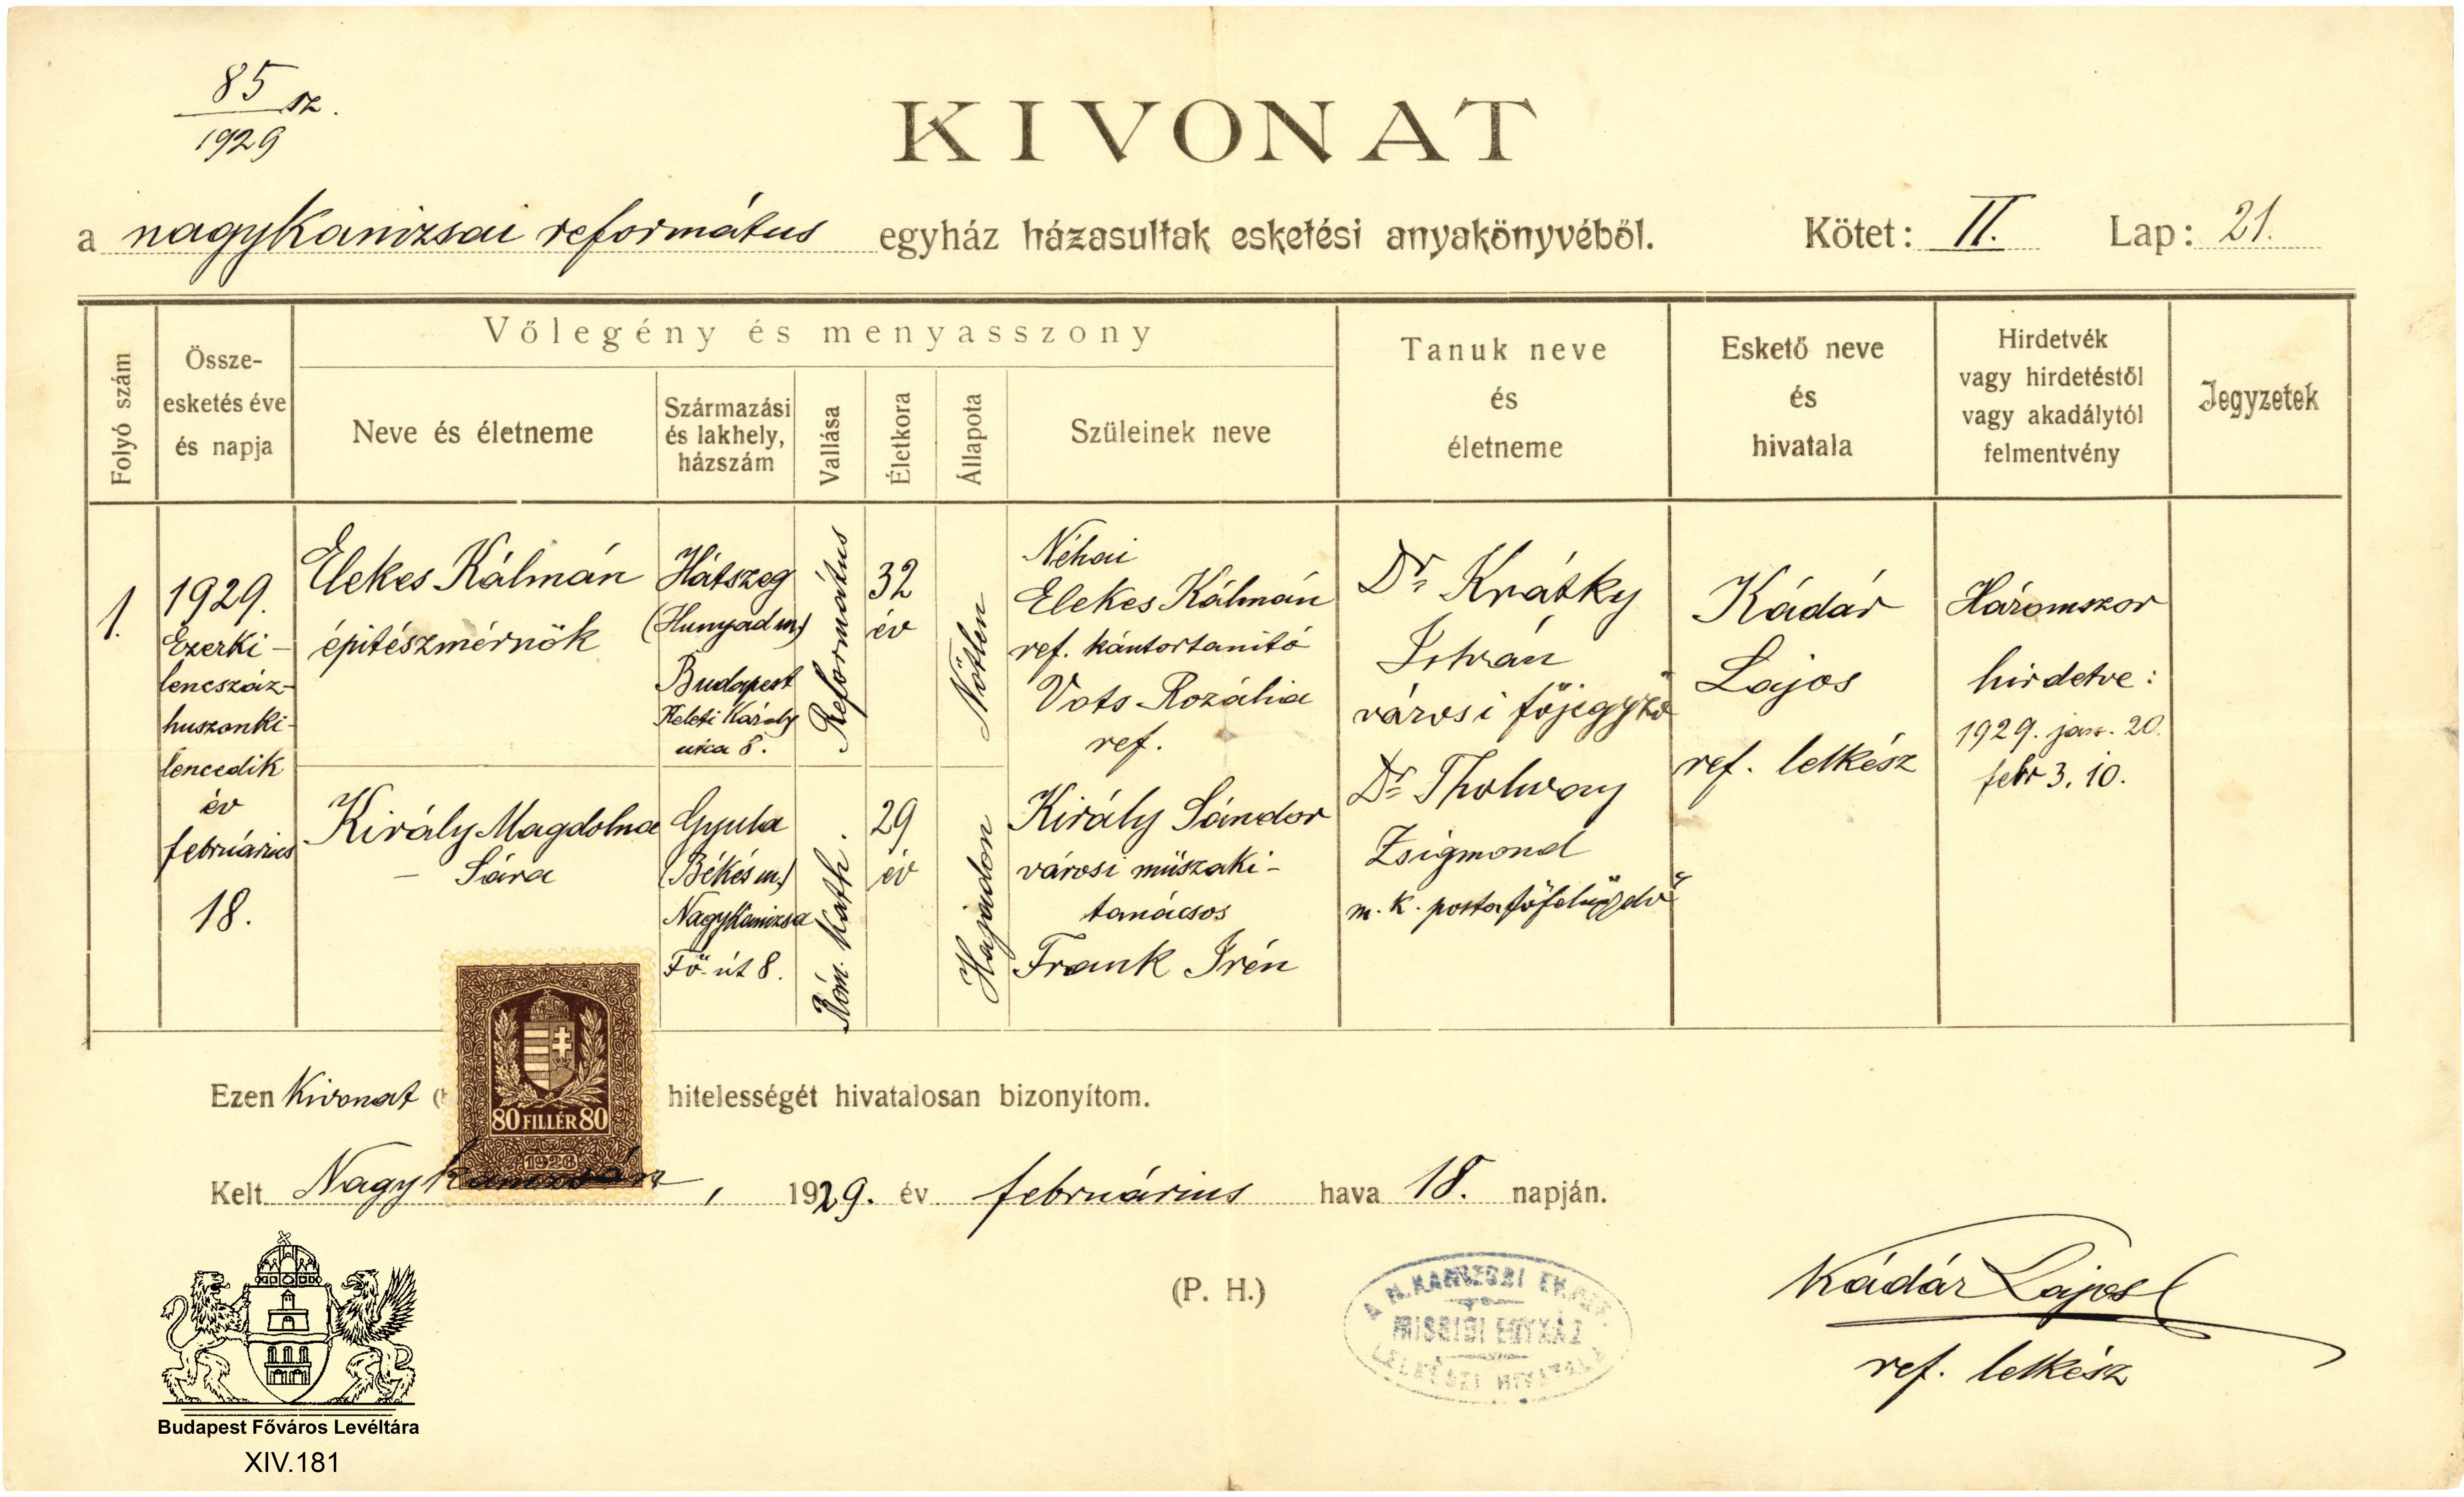 85 sz.
1929
KIVONAT
a nagykanizsai református egyház házasultak esketési anyakönyvéből. Kötet: II. Lap: 21.
Folyó szám
Össze-
esketés éve
és napja
Vőlegény és menyasszony
Neve és életneme
Származási
és lakhely,
házszám
Vallása
Életkora
Állapota
Szüleinek neve
Tanuk neve
és
életneme
Eskető neve
és
hivatala
Hirdetvék
vagy hirdetéstől
vagy akadálytól
felmentvény
Jegyzetek
1.
1929.
Ezerki-
lencszáz-
huszonki-
lencedik
év
február​ius
18.
Elekes Kálmán
építészmérnök
Hátszeg
(Hunyad m.)
Budapest
Keleti Károly
utca 8.
Református
32
év
Nőtlen
Néhai
Elekes Kálmán
ref. kántortanító
Vots Rozália
ref.
Király Magdolna
- Sára
Gyula
(Békés m.)
Nagykanizsa
Fő-út 8.
Róm. kath.
29
év
Hajadon
Király Sándor
városi műszaki-
tanácsos
Frank Irén
Dr. Krátky
István
városi főjegyző
Dr. Tholway
Zsigmond
m. k. posta főfelügyelő
Kádár
Lajos
ref. lelkész
Háromszor
hirdetve:
1929. jan. 20.
febr 3. 10.
Ezen Kivonat hitelességét hivatalosan bizonyítom.
80 FILLÉR 80
1926
Kelt Nagykanizsán, 1929. év február​ius hava 18. napján.
(P. H.)
A N.KANIZSAI
MISSIÓI EGYHÁZ
LELKÉSZI HIVATALA
Kádár Lajos
ref. lelkész
Budapest Főváros Levéltára
XIV.181